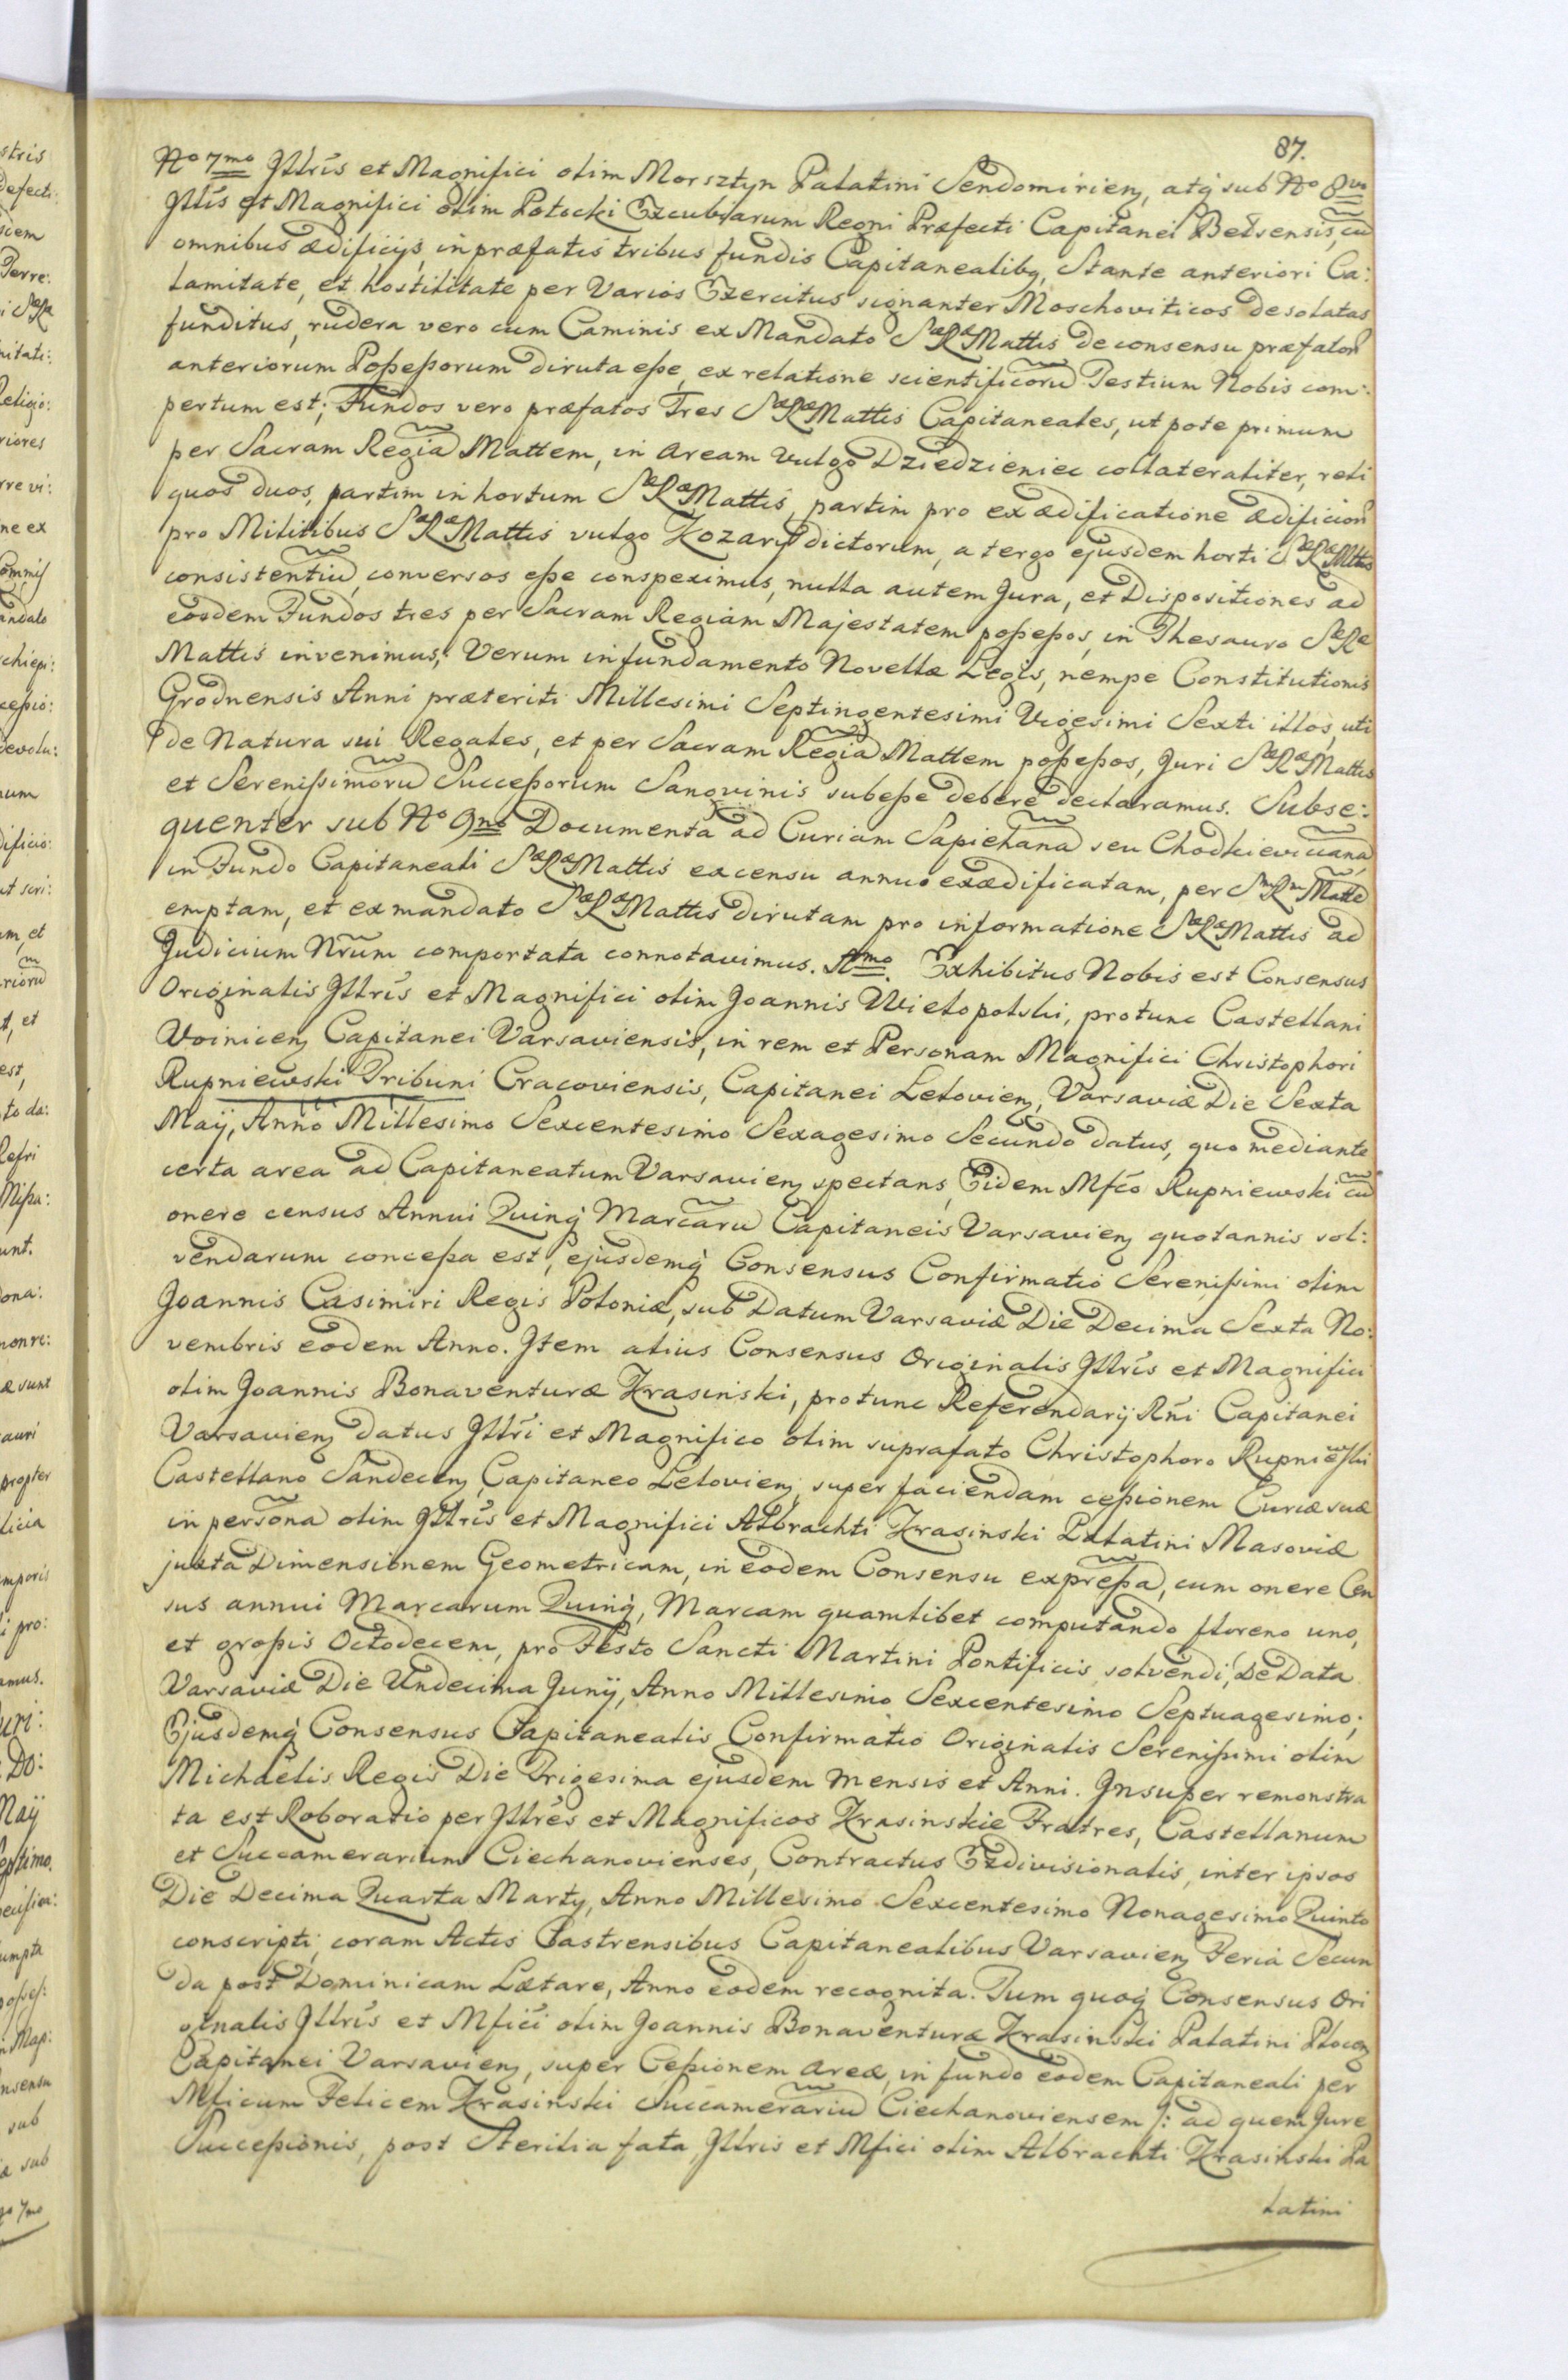 87.
No 7mo Jllris et Magnifici olim Morsztyn Palatini Sendomirien, atq sub No 8vo
Jllis et Magnifici olim Potocki Excubiarum Regni Præfecti Capitanei Belsensis, cu
omnibus ædificijs, in præfatis tribus fundis Capitanealibq, Stante anteriori Ca:
lamitate, et hostilitate per Varios Exercitus signanter Moschoviticos desolatas
funditus, rudera vero cum Caminis ex Mandato SæRæ Mattis de consensu præfator
anteriorum Poßeßorum diruta eße, ex relatione scientificoru Testium Nobis com:
pertum est; Fundos vero præfatos Tres SæRæ Mattis Capitaneales, ut pote primum
per Sacram Regia Mattem, in Aream vulgo Dziedzieniec collateraliter, reli
quos duos, partim in hortum SæRæ Mattis, partim pro exædificatione ædificior
pro Militibus SæRæ Mattis vulgo Kozary dictorum, a tergo ejusdem horti SæRæ Mttis
consistentiu, conversos eße conspeximus, nulla autem Jura, et Dispositiones ad
eosdem Fundos tres per Sacram Regiam Majestatem poßeßos, in Thesauro SæRæ
Mattis invenimus, Verum in fundamento Novellæ Legis, nempe Constitutionis
Grodnensis Anni præteriti Millesimi Septingentesimi Vigesimi Sexti illos, uti
de Natura sui Regales, et per Sacram Regia Mattem poßeßos, Juri SæRæ Mattis
et Sereniſsimoru Succeßorum Sanguinis subeße debere declaramus. Subse:
quenter sub No 9no Documenta ad Curiam Sapiehana seu Chodkieviciana,
in Fundo Capitaneali SæRæ Mattis ex censu annuo exædificatam, per SmRm Matte
emptam, et ex mandato SæRæ Mattis dirutam pro informatione SæRæ Mattis ad
Judicium Nrum comportata connotavimus. Amo. Exhibitus Nobis est Consensus
Originalis Jllris et Magnifici olim Joannis Wielopolski, protunc Castellani
Voinicen Capitanei Varsaviensis, in rem et Personam Magnifici Christophori
Rupniewski Tribuni Cracoviensis, Capitanei Lelovien, Varsaviæ Die Sexta
Maij, Anno Millesimo Sexcentesimo Sexagesimo Secundo datus, quo mediante
certa area ad Capitaneatum Varsavien spectans, Eidem Mfco Rupniewski cu
onere census Annui Quinq Marcaru Capitaneis Varsavien quotannis sol:
vendarum conceßa est, ejusdemq Consensus Confirmatio Sereniſsimi olim
Joannis Casimiri Regis Poloniæ, sub Datum Varsaviæ Die Decima Sexta No:
vembris eodem Anno. Jtem alius Consensus Originalis Jllris et Magnifici
olim Joannis Bonaventuræ Krasinski, protunc Referendarij Rni Capitanei
Varsavien datus Jllri et Magnifico olim suprafato Christophoro Rupniewski
Castellano Sandecen, Capitaneo Lelovien, super faciendam ceßionem Curiæ suæ
in persona olim Jllris et Magnifici Albrachti Krasinski Palatini Masoviæ
juxta Dimensionem Geometricam, in eodem Consensu expreßa, cum onere Cen
sus annui Marcarum Quinq, Marcam quamlibet computando floreno uno,
et großis Octodecem, pro Festo Sancti Martini Pontificis solvendi, De Data
Varsaviæ Die Undecima Junij, Anno Millesimo Sexcentesimo Septuagesimo;
Ejusdemq Consensus Capitanealis Confirmatio Originalis Sereniſsimi olim
Michaelis Regis Die Trigesima ejusdem mensis et Anni. Jnsuper remonstra
ta est Roboratio per Jllres et Magnificos Krasinskie Fratres, Castellanum
et Succamerarium Ciechanovienses, Contractus Exdivisionalis, inter ipsos
Die Decima Quarta Martij, Anno Millesimo Sexcentesimo Nonagesimo Quinto
conscripti, coram Actis Castrensibus Capitanealibus Varsavien Feria Secun
da post Dominicam Lætare, Anno eodem recognita. Tum quoq Consensus Ori
ginalis Jllris et Mfici olim Joannis Bonaventuræ Krasinski Palatini Plocen
Capitanei Varsavien, super Ceßionem Areæ, in fundo eodem Capitaneali per
Mficum Felicem Krasinski Succamerariu Ciechanoviensem /: ad quem Jure
Succeßionis, post Sterilia fata Jllris et Mfici olim Albrachti Krasinski Pa
latini